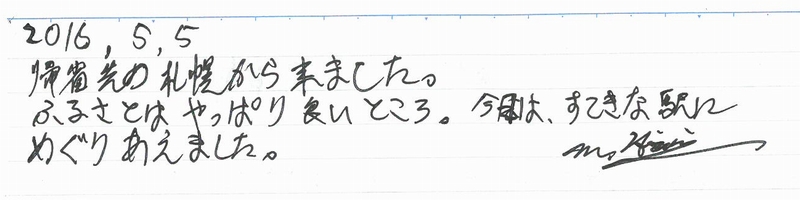 2016,5,5
帰省先の札幌から来ました。
ふるさとはやっぱり良いところ。今日は、すてきな駅に
めぐりあえました。